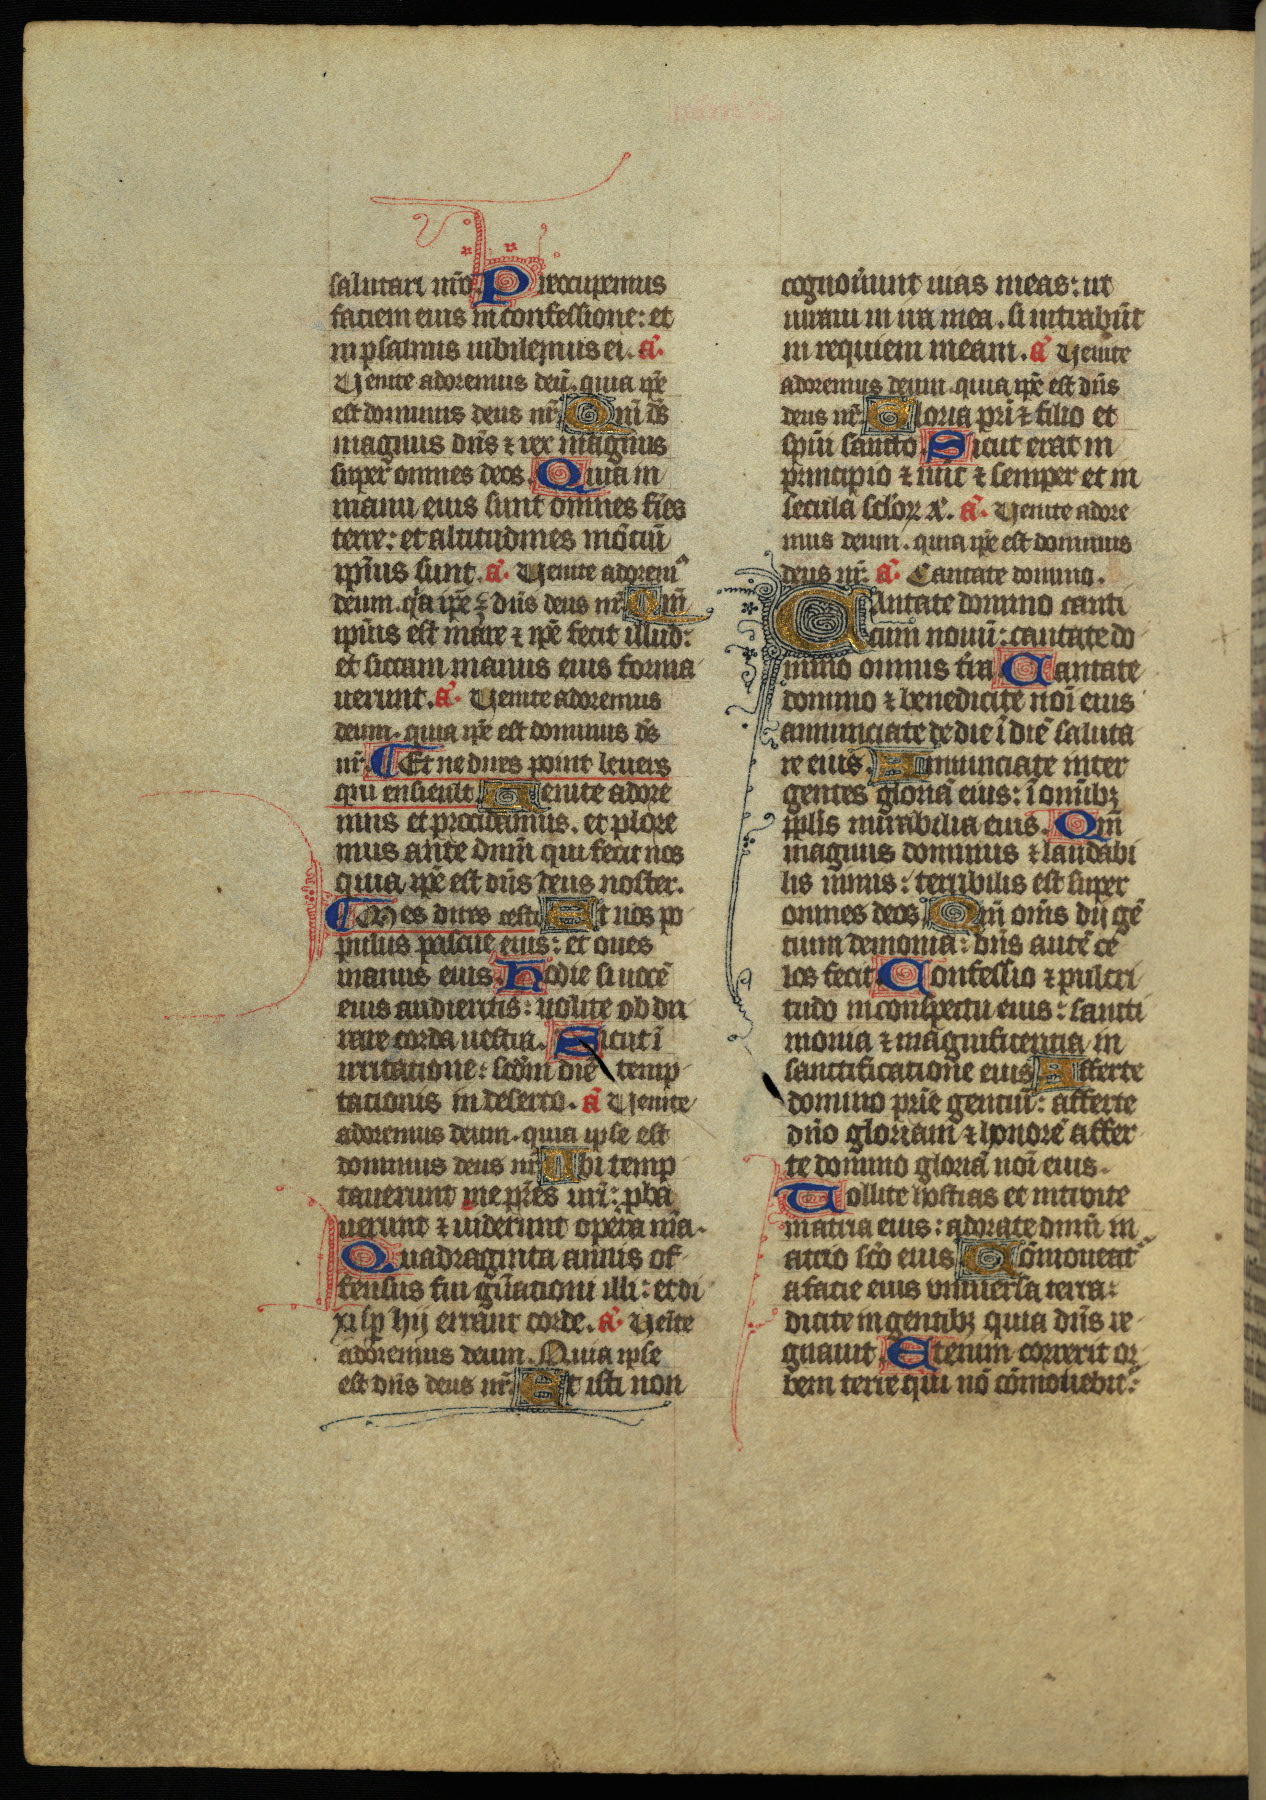 salutari nr̄o. Preocupemus
faciem eius in confessione: et
in psalmis iubilemus ei. a͛.
Venite adoremus deū. quia ip̄e
est dominus deus nr̄. Qm̄ ds̄
magnus dn̄s ⁊ rex magnus
super omnes deos. Quia in
manu eius sunt omnes fīes
terre: et altitudines mōtiū
ip̄ius sunt. a͛. Venite adorem⁹
deum. q̄a ip̄e ē dn̄s deus nr̄. Qm̄
ip̄ius est mare ⁊ ip̄e fecit illud:
et siccam manus eius forma
uerunt. a͛. Venite adoremus
deum. quia ip̄e est dominus ds̄
nr̄. Et ne dires point le uers
qui ensieult Venite adore
mus et procidamus. et plore
mus ante dnm̄ qui fecit nos
quia ip̄e est dn̄s deus noster.
Mes dires cestı Et nos po
pulus pascue eius: et oues
manus eius. Hodie si uocē
eius audieritis: nolite obdu
rare corda uestra. Sicut ī
irritatione: scd̄m diē temp
tationis in deserto. a͛ Venite
adoremus deum. quia ipse est
dominus deus nr̄. Vbi temp
tauerunt me pr̄es uri: pba
uerunt ⁊ uiderunt opera mēa.
Quadraginta annis of
fensus fui gn̄ationi illi: et di
xi sp̄ hij errant corde. a͛. Venīte
adoremus deum. Quia ipse
est dn̄s deus nr̄. Et isti non
cognouerunt uias meas: ut
iuraui in ira mea. si intrabūt
in requiem meam. a͛ Venite
adoremus deum. quia ip̄e est dn̄s
deus nr̄. Gloria pr̄i ⁊ filio et
spiū sancto. Sicut erat in
principio ⁊ nūc ⁊ semper et in
secula sclōꝝ ā. a͛. Venite adore
mus deum. quia ip̄e est dominus
deus nr̄. a͛. Cantate domino.
Cantate domino canti
cum nouū: cantate do
mino omnis tr̄a Cantate
domino ⁊ benedicite noī eius
annunciate de die ī diē saluta
re eius. Annunciate inter
gentes gloriā eius: ī omībꝫ
ppl̄is mirabilia eius. Qm̄
magnus dominus ⁊ laudabi
lis nimis: terribilis est super
omnes deos Qm̄ omēs dij gē
tium demonia: dn̄s autē ce
los fecit Confessio ⁊ pulcri
tudo in conspectu eius: sancti
monia ⁊ magnificentia in
sanctificatione eius Afferte
domino pr̄ie gentiū: afferte
dn̄o gloriam ⁊ honorē affer
te domino gloriā noī eius.
Tollite hostias et introite
in atria eius: adorate dnm̄ in
atrio scō eius Cōmoueat̄
a facie eius vniuersa terra:
dicite in gentibꝫ quia dn̄s re
gnauit. Etenim correxit or
bem terre qui nō cōmouebit̄: